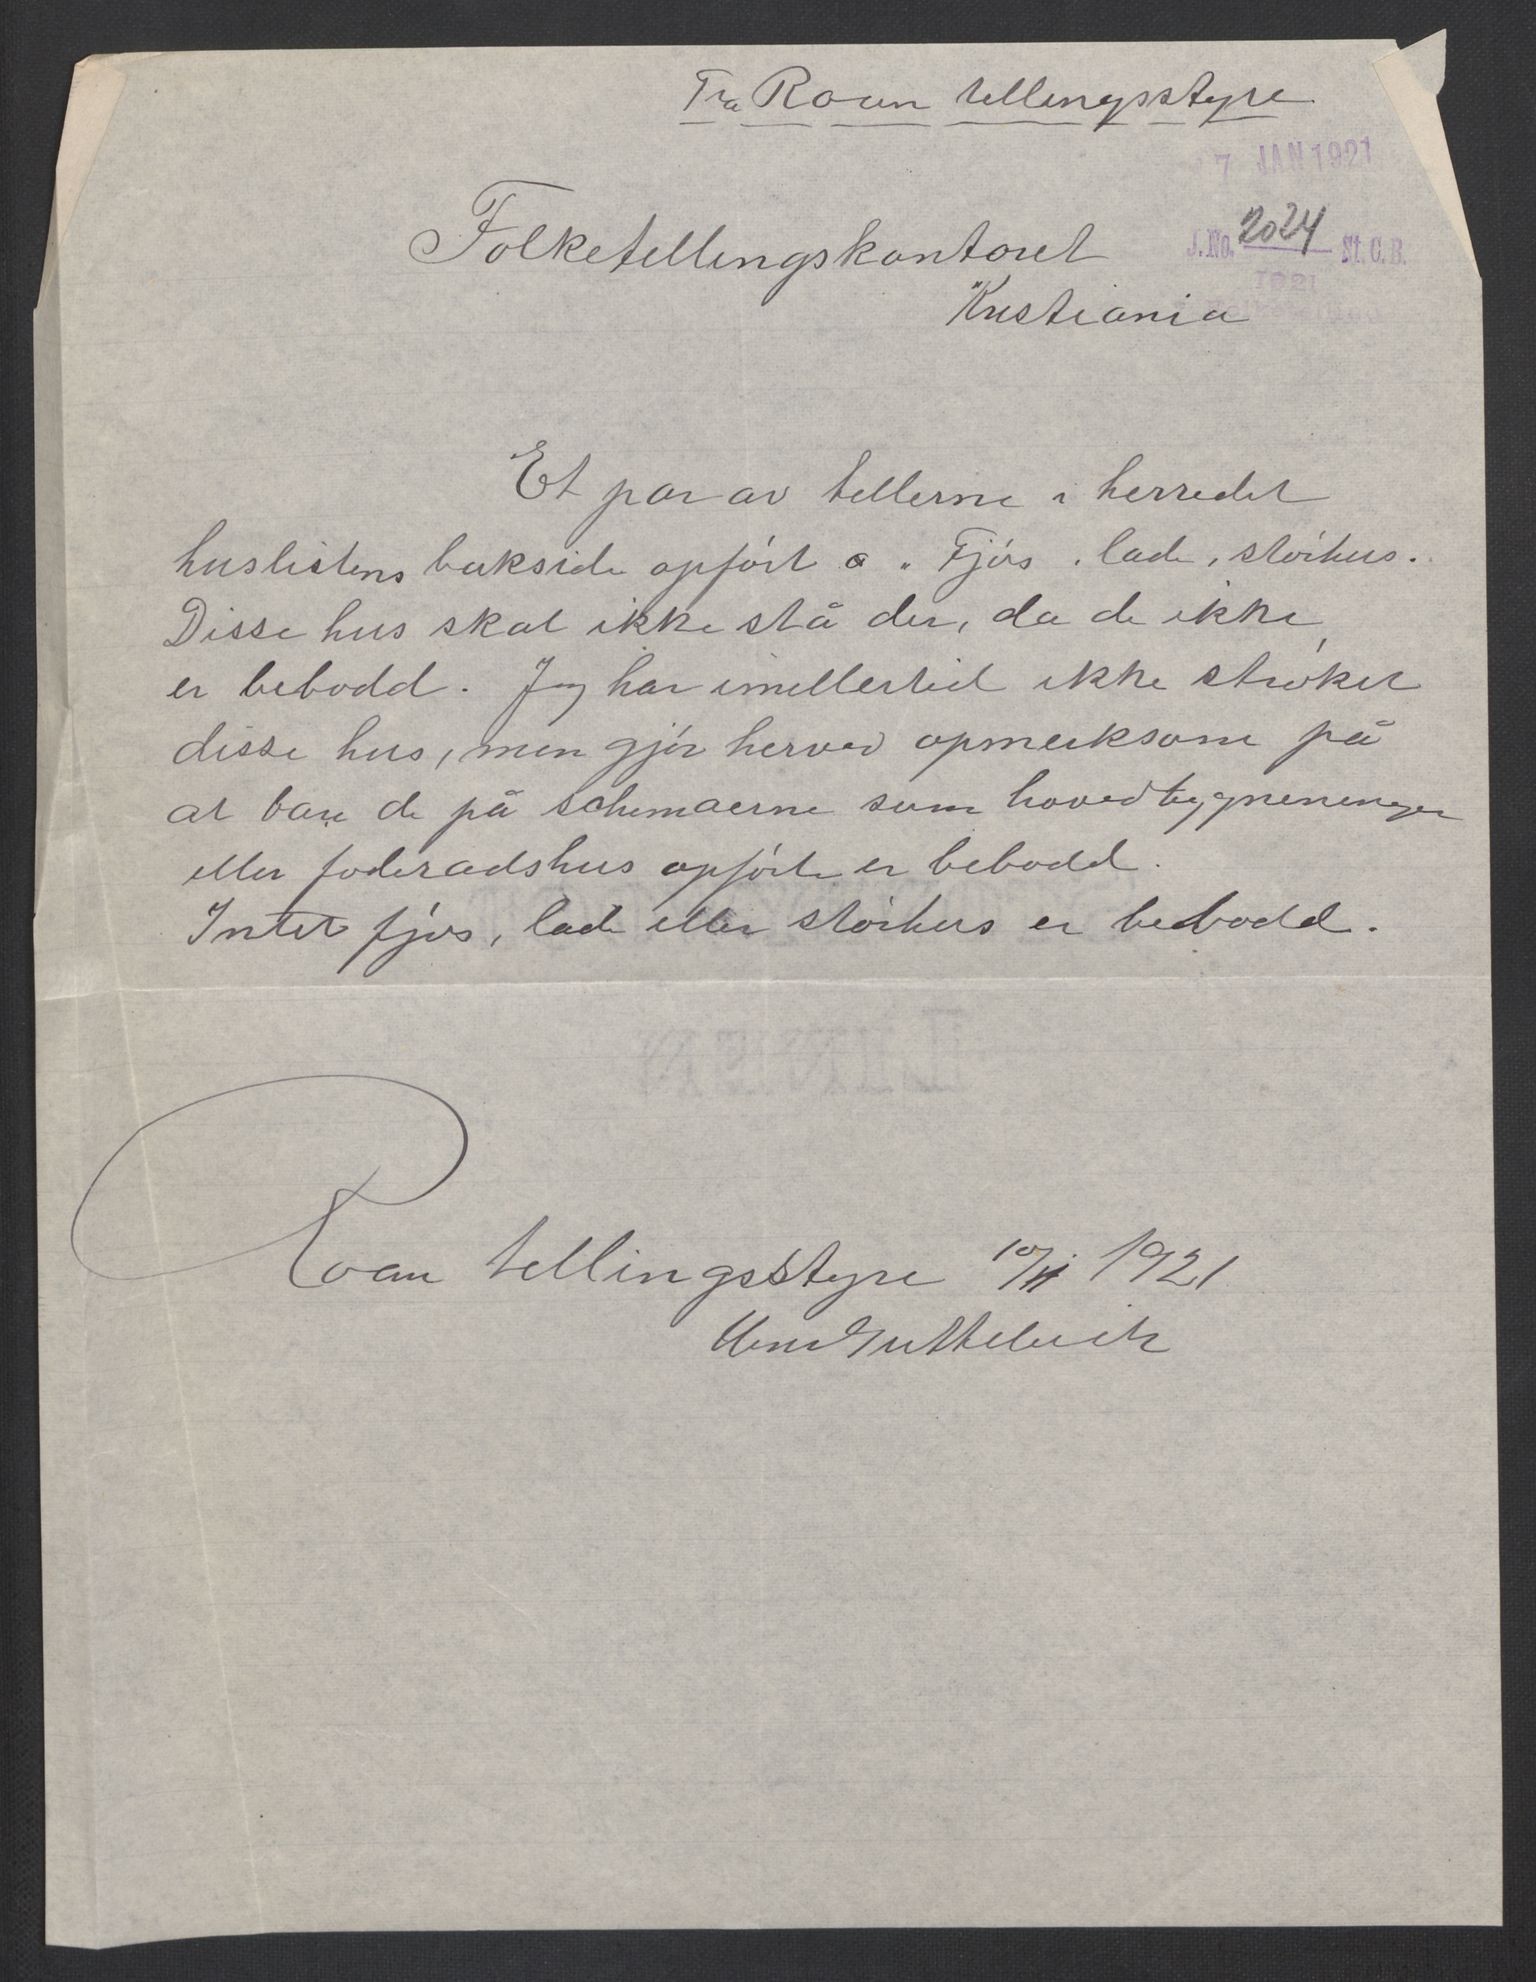 Fra Roan tellingsstyre
7 JAN 1921
Folketellingskontoret
J.No. 2024 St.C.B.
1921
Kristiania
Et par av tellerne i herredet
huslistens bakside opført a „ Fjøs , lade , størhus .
Disse hus skal ikke stå der, da de ikke
er bebodd . Jeg har imellertid ikke strøket
disse hus, men gjør herved opmerksom på
at bare de på schemaerne som hovedbygneninger
eller foderådshus opførte er bebodd .
Intet fjøs , lade eller størhus er bebodd .
LINEN
Roan tellingsstyre 10/II 1921